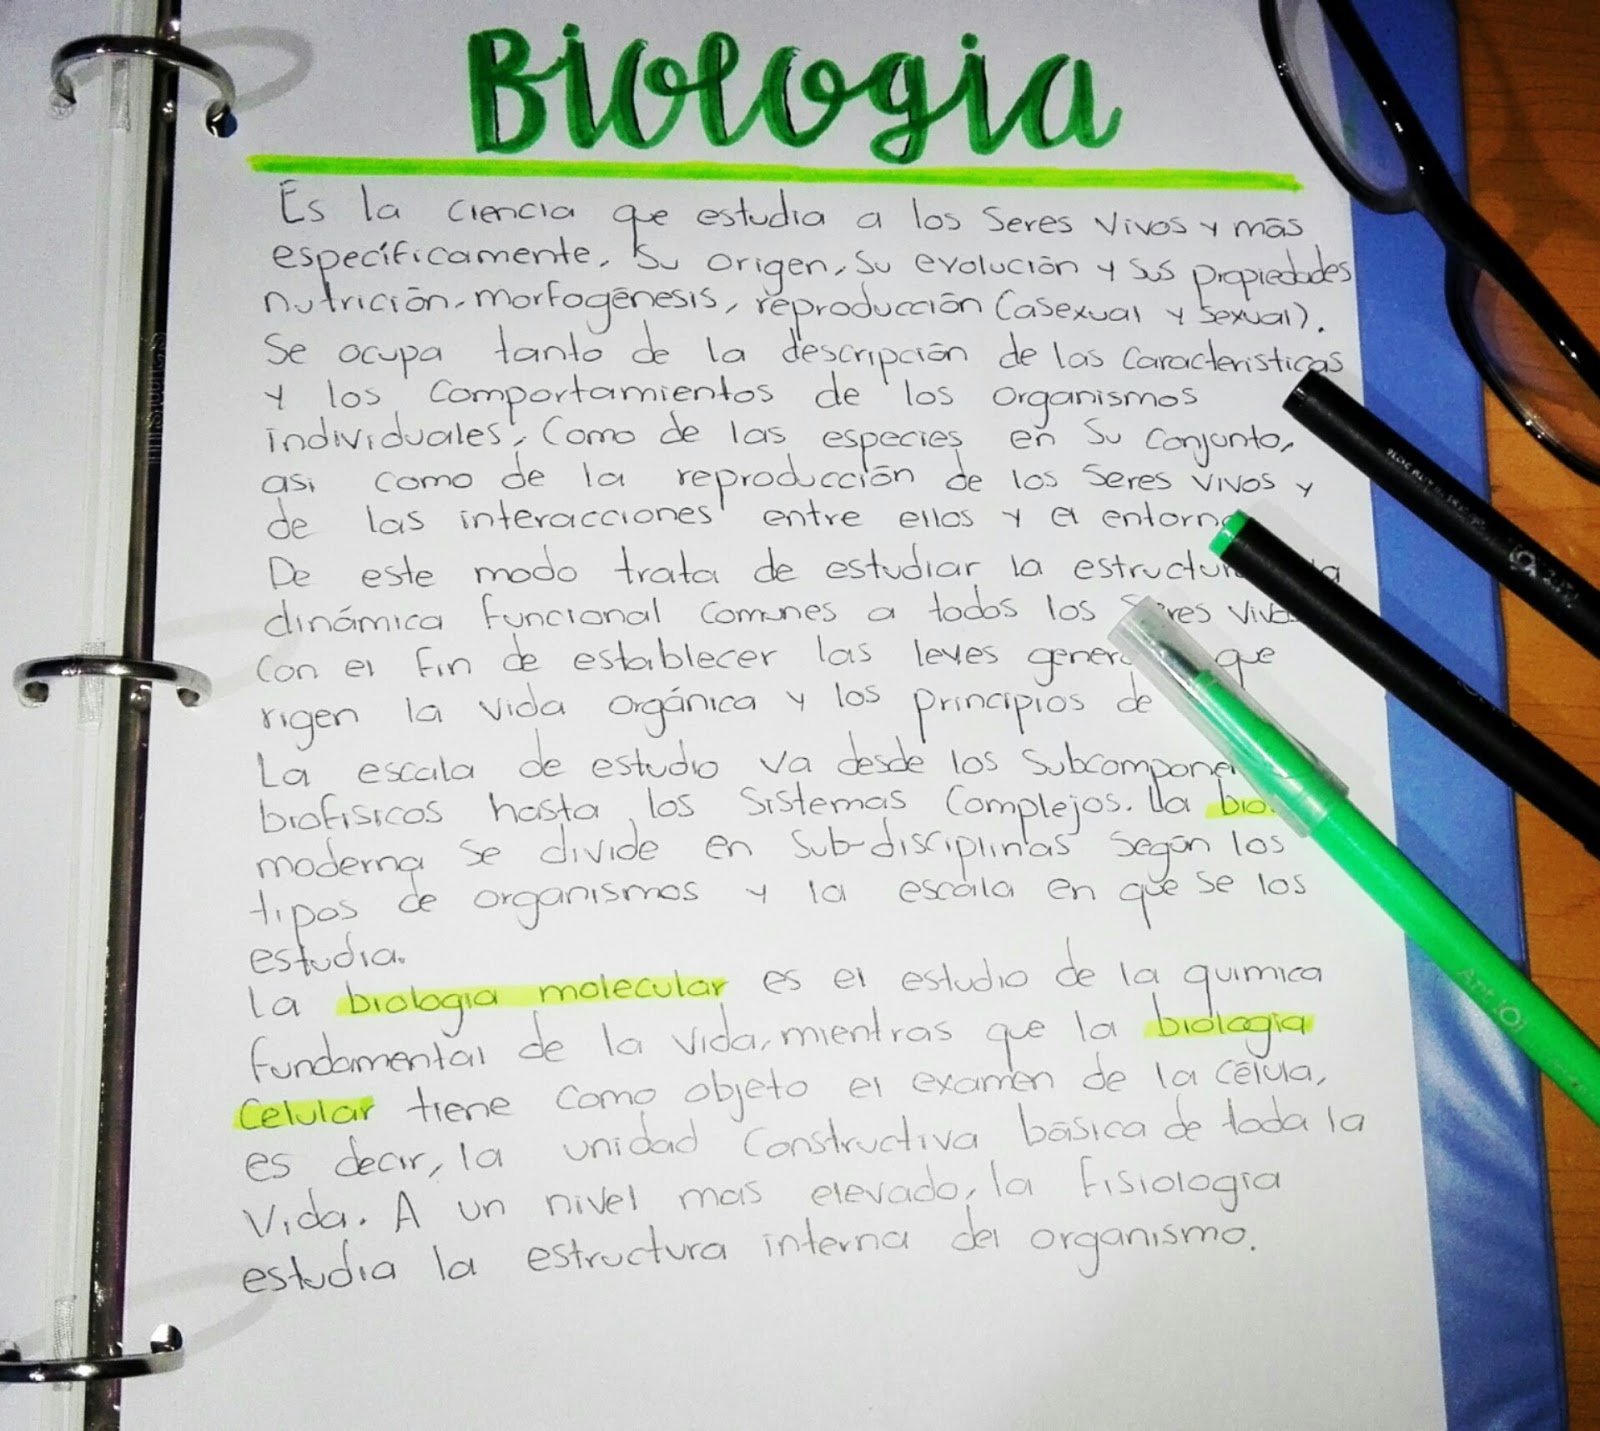 Biologia
Es la ciencia que estudia a los Seres Vivos y más
específicamente, su origen, su evolución y sus propiedades
nutrición, morfogénesis, reproducción (asexual y sexual).
Se ocupa tanto de la descripción de las características
y los comportamientos de los organismos
individuales, como de las especies en su conjunto,
asi como de la reproducción de los Seres vivos y
de las interacciones entre ellos y el entorno
De este modo trata de estudiar la estructura la
dinámica funcional comunes a todos los Seres Vivos
con el fin de establecer las leyes que
rigen la vida orgánica y los principios de
La escala de estudio va desde los
biofisicos hasta los Sistemas Complejos. La
moderna se divide en Sub-disciplinas según los
tipos de organismos y la escala en que se los
estudia.
La biologia molecular es el estudio de la quimica
fundamental de la vida, mientras que la biologia
Celular tiene como objeto el examen de la célula,
es decir, la unidad constructiva básica de toda la
Vida. A un nivel mas elevado, la Fisiologia
estudia la estructura interna del organismo.